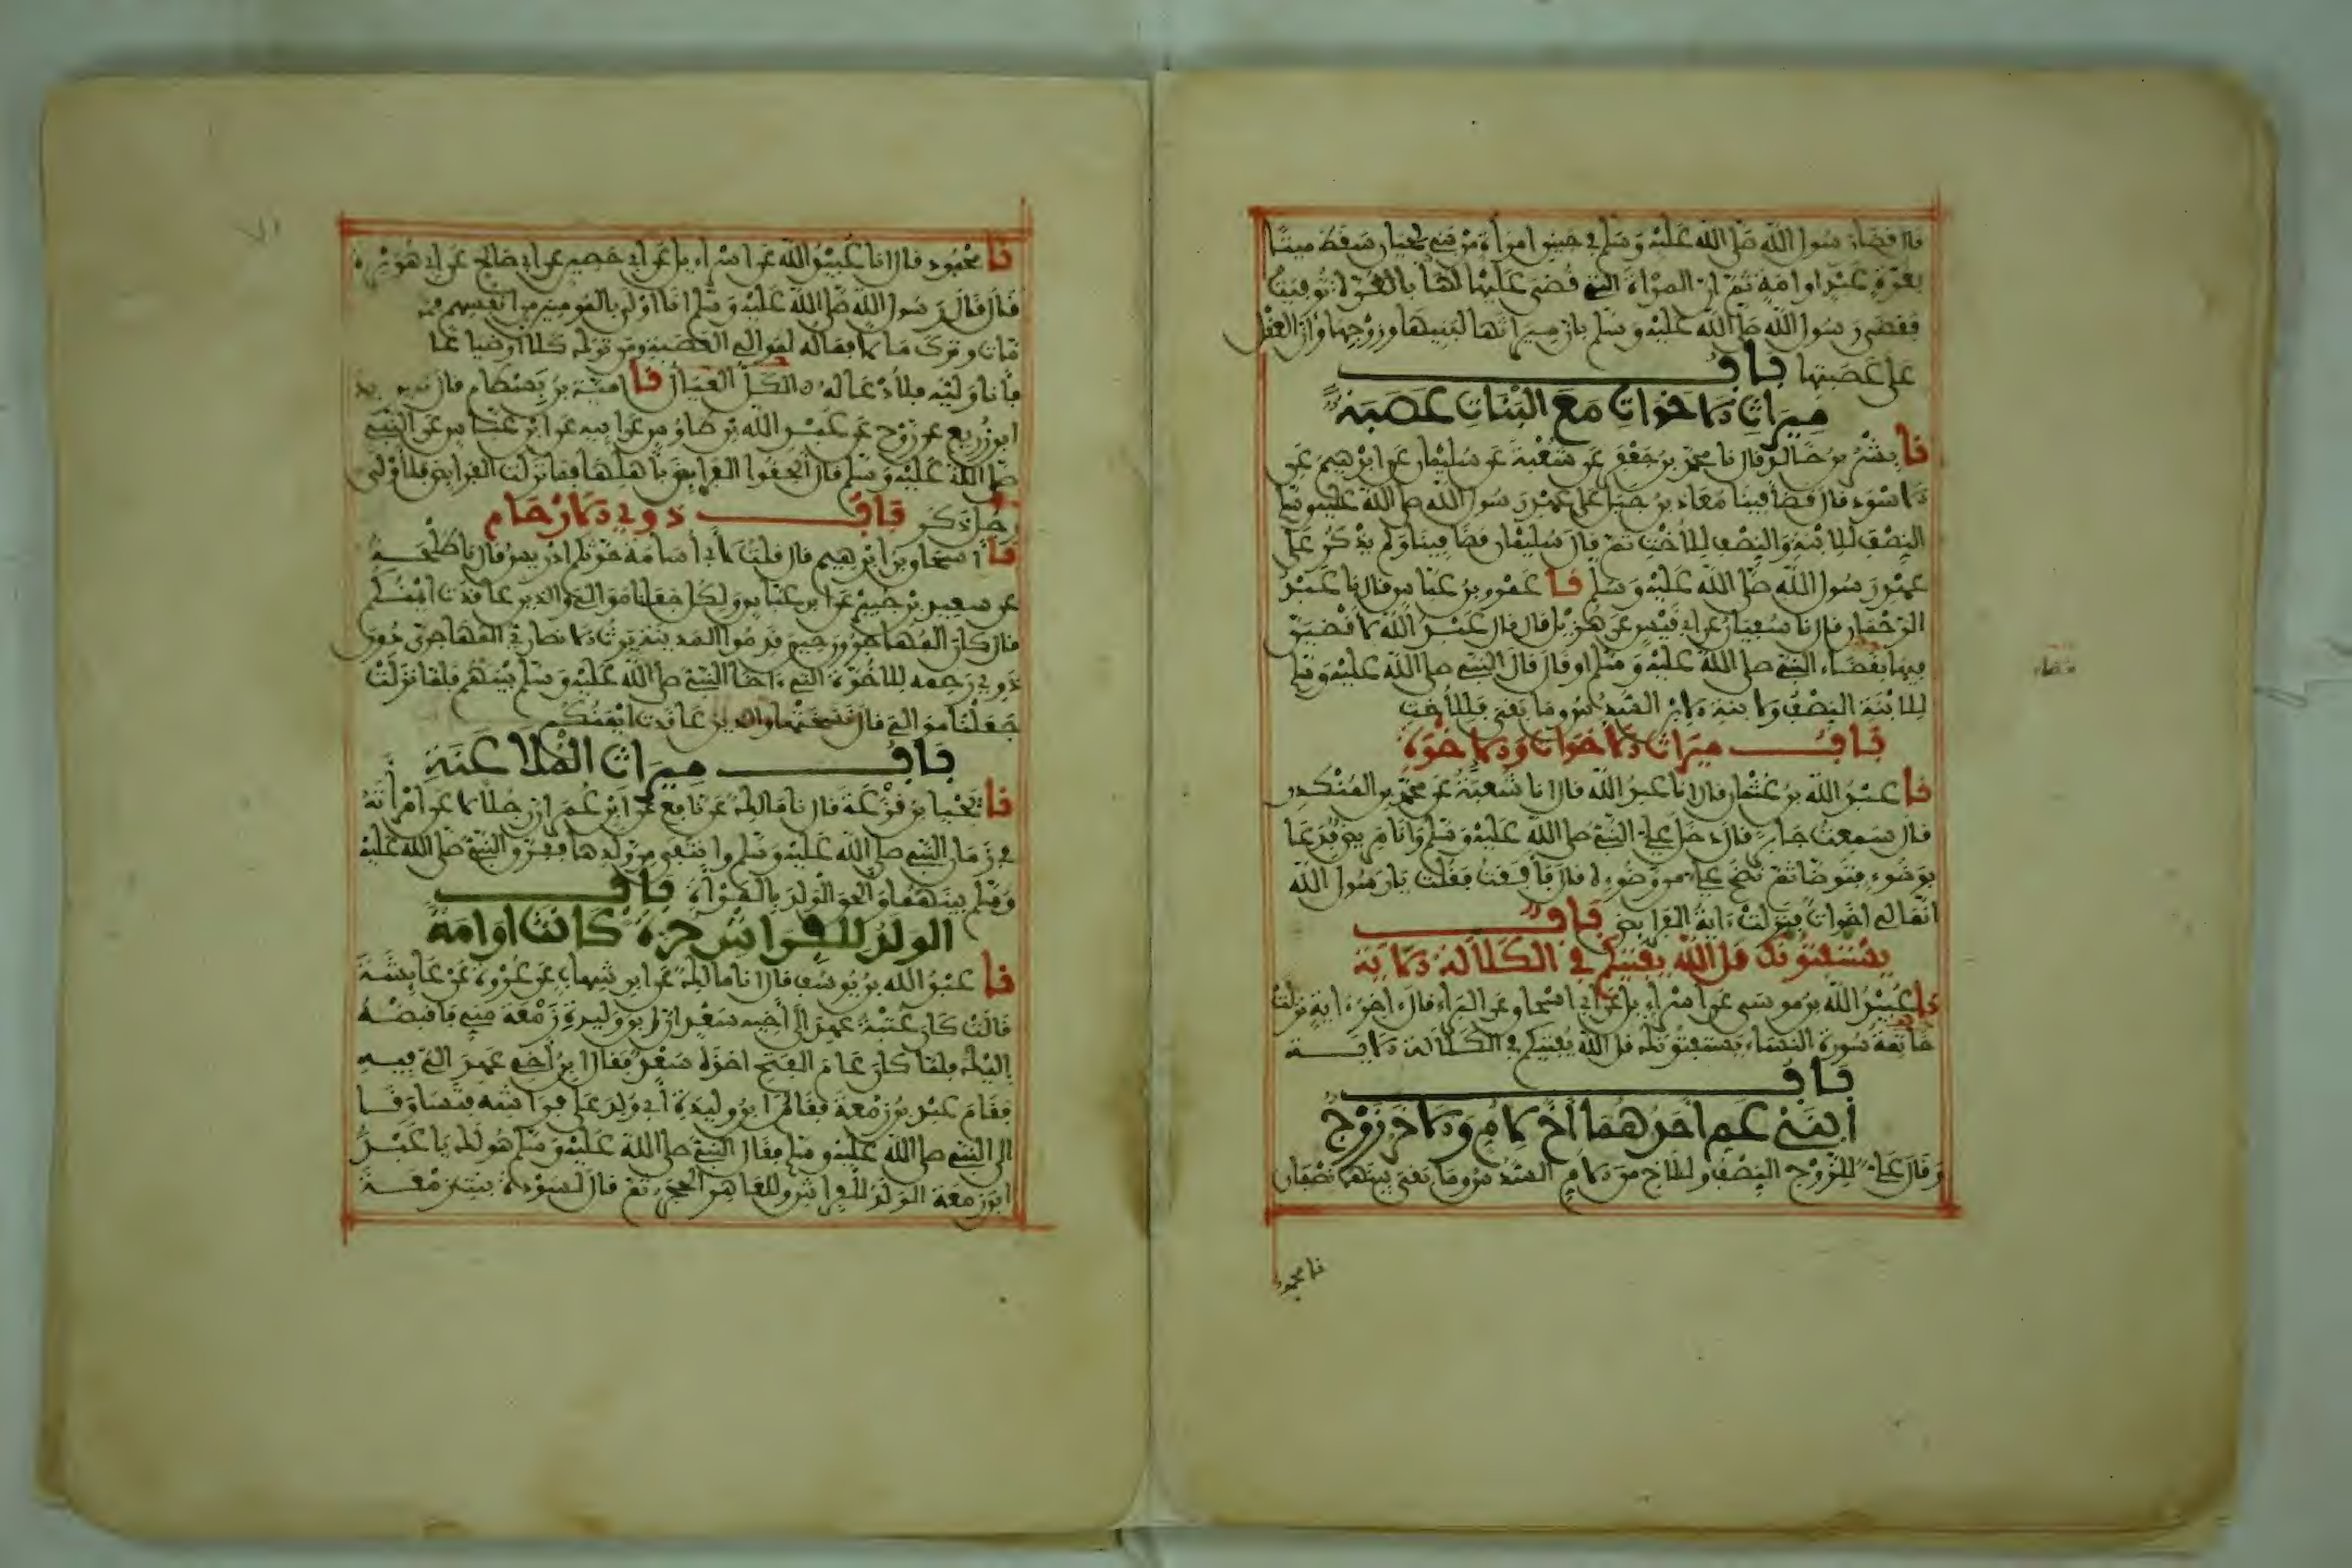 قال قضا رسول الله صلى الله عليه وسلم في جنين امرأة من بني لحيان سقط ميتا
بغرة عبد او امة ثم ان المرأة التي قضى عليها بالغرة توفيت
فقضى رسول الله صلى الله عليه وسلم بان ميراثها لبنيها وزوجها وأن العقل
على عصبتها باب
ميراث الاخوات مع البنات عصبة
نا بشر بن خالد قال نا محمد بن جعفر عن شعبة عن سليمان عن ابرهيم عن
الاسود قال قضا فينا معاذ بن جبل على عهد رسول الله صلى الله عليه وسلم
النصف للابنة والنصف للأخت ثم قال سليمان قضا فينا ولم يذكر على
عهد رسول الله صلى الله عليه وسلم نا عمرو بن عباس قال نا عبد
الرحمان قال نا سفيان عن ابي قيس عن هزيل قال قال عبد الله لاقضين
فيها بقضاء النبي صلى الله عليه وسلم او قال قال النبي صلى الله عليه وسلم
للابنة النصف ولابنة الابن السدس وما بقي فللأخت
باب ميراث الاخوات والاخوة
نا عبد الله بن عثمان قال انا عبد الله قال انا شعبة عن محمد بن المنكدر
قال سمعت جابرا قال دخل علي النبي صلى الله عليه وسلم وانا مريض فدعا
بوضوء فتوضأ ثم نضح علي من وضوءه قال فأفقت فقلت يا رسول الله
انما لي اخوات فنزلت ءاية الفرايض باب
يستفتونك قل الله يفتيكم في الكلالة الاية
نا عبيد الله بن موسى عن اسراءيل عن ابي اسحاق عن البراء قال ءاخر ءاية نزلت
خاتمة سورة النساء يستفتونك قل الله يفتيكم في الكلالة الاية
باب
ابني عم احدهما أخ لام والاخر زوج
وقال علي للزوج النصف وللاخ من الام السدس وما بقي بينهما نصفان
نا محمود
قضاء
نا محمود قال انا عبيد الله عن اسراءيل عن ابي حصين عن ابي صالح عن ابي هريرة
قال قال رسول الله صلى الله عليه وسلم انا اولى بالمومنين من انفسهم فمن
مات وترك مالا فماله لموالي العصبة ومن ترك كلا او ضياعا
فأنا وليه فلأدعا له الكل العيال نا امية بن بسطام قال نا يزيد
ابن زريع عن روح عن عبد الله بن طاوس عن ابيه عن ابن عباس عن النبي
صلى الله عليه وسلم قال ألحقوا الفرايض بأهلها فما تركت الفرايض فلأولى
رجل ذكر باب ذوي الارحام
نا اسحاق بن ابرهيم قال قلت لأبي أسامة حدثكم ادريس قال نا طلحة
عن سعيد بن جبير عن ابن عباس ولكل جعلنا موالي والذين عاقدت ايمنكم
قال كان المهاجرون حين قدموا المدينة يرث الانصاري المهاجري دون
ذوي رحمه للأخوة التي ءاخا النبي صلى الله عليه وسلم بينهم فلما نزلت
جعلنا موالي قال نسختها والذين عاقدت ايمنكم
باب ميراث الملاعنة
نا يحيا بن قزعة قال نا مالك عن نافع عن ابن عمر ان رجلا لاعن امرأته
في زمان النبي صلى الله عليه وسلم وانتفى من ولدها ففرق النبي صلى الله عليه
وسلم بينهما والحق الولد بالمرأة باب
الولد للفراش حرة كانت او امة
نا عبد الله بن يوسف قال انا مالك عن ابن شهاب عن عروة عن عايشة
قالت كان عتبة عهد الى أخيه سعد ان ابن وليدة زمعة مني فاقبضه
اليك فلما كان عام الفتح اخذه سعد فقال ابن أخي عهد الي فيه
فقام عبد بن زمعة فقال أخي وابن وليدة أبي ولد على فراشه فتساوقا
الى النبي صلى الله عليه وسلم فقال النبي صلى الله عليه وسلم هو لك يا عبد
ابن زمعة الولد للفراش وللعاهر الحجر ثم قال لسودة بنت زمعة